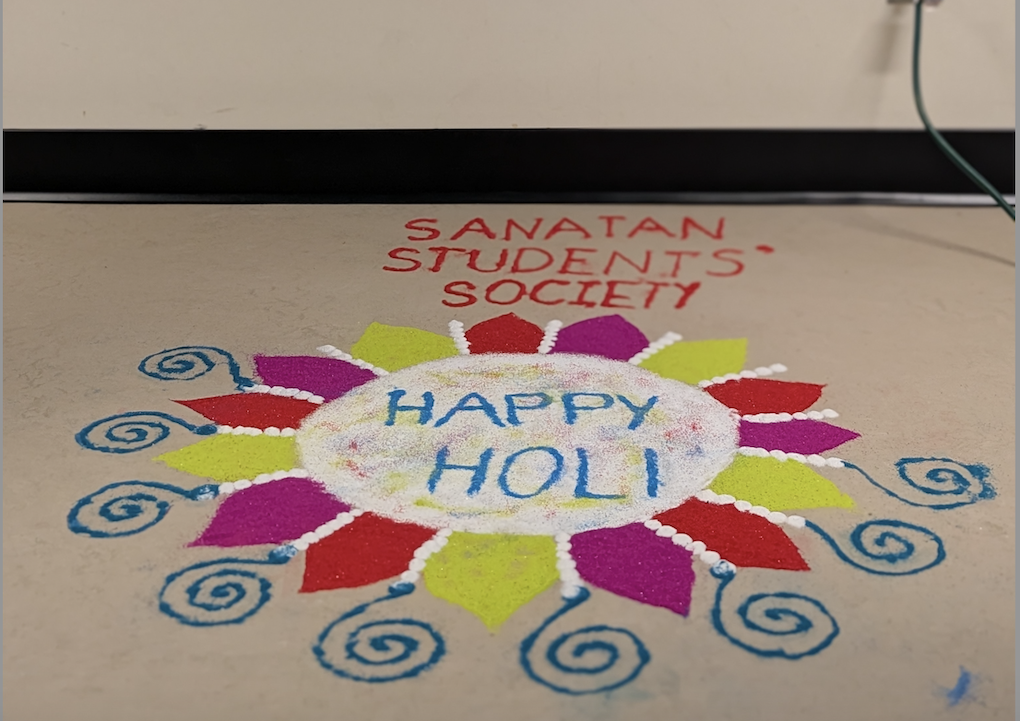 SANATAN
STUDENTS'
SOCIETY
HAPPY
HOLI